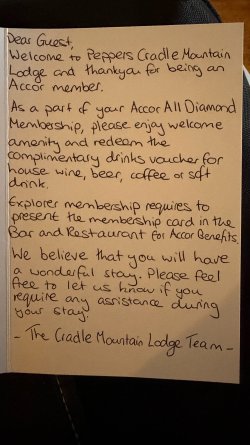 Dear Guest,
Welcome to Peppers Cradle Mountain
Lodge and thankyou for being an
Accor member.
As a part of your Accor All Diamond
Membership, please enjoy welcome
amenity and redeem the
complimentary drinks voucher for
house wine, beer, coffee or soft
drink.
Explorer membership requires to
present the membership card in the
Bar and Restaurant for Accor Benefits.
We believe that you will have
a wonderful stay. Please feel
free to let us know if you
require any assistance during
your stay.
- The Cradle Mountain Lodge Team -